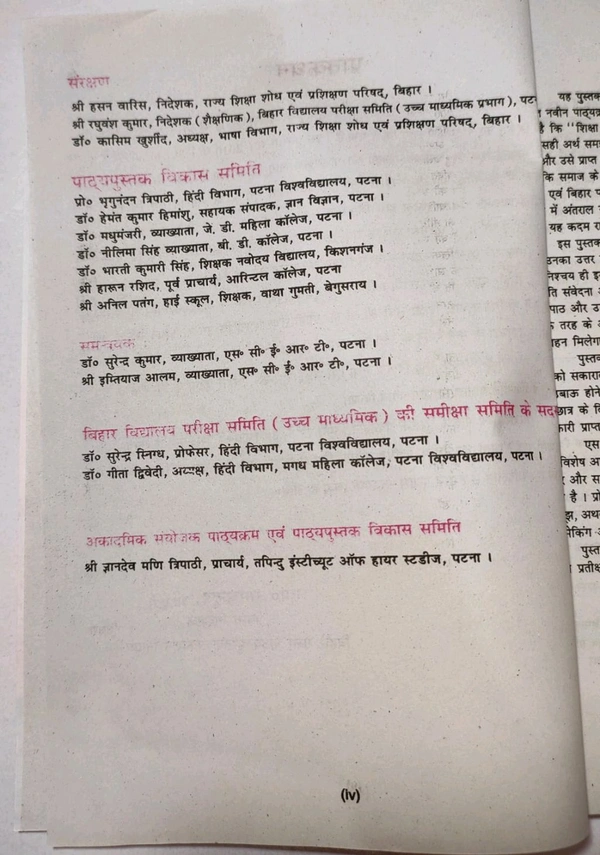 संरक्षण
श्री हसन वारिस, निदेशक, राज्य शिक्षा शोध एवं प्रशिक्षण परिषद्, बिहार ।
श्री रघुवंश कुमार, निदेशक (शैक्षणिक), बिहार विद्यालय परीक्षा समिति (उच्च माध्यमिक प्रभाग), पटना
डॉ० कासिम खुर्शीद, अध्यक्ष, भाषा विभाग, राज्य शिक्षा शोध एवं प्रशिक्षण परिषद्, बिहार ।
पाठ्यपुस्तक विकास समिति
प्रो० भृगुनंदन त्रिपाठी, हिंदी विभाग, पटना विश्वविद्यालय, पटना ।
डॉ० हेमंत कुमार हिमांशु, सहायक संपादक, ज्ञान विज्ञान, पटना ।
डॉ० मधुमंजरी, व्याख्याता, जे. डी. महिला कॉलेज, पटना ।
डॉ० नीलिमा सिंह व्याख्याता, बी. डी. कॉलेज, पटना ।
डॉ० भारती कुमारी सिंह, शिक्षक नवोदय विद्यालय, किशनगंज ।
श्री हारून रशिद, पूर्व प्राचार्य, आरिन्टल कॉलेज, पटना
श्री अनिल पतंग, हाई स्कूल, शिक्षक, वाथा गुमती, बेगुसराय ।
समन्वयक :
डॉ० सुरेन्द्र कुमार, व्याख्याता, एस० सी० ई० आर० टी०, पटना ।
श्री इम्तियाज आलम, व्याख्याता, एस० सी० ई० आर० टी०, पटना ।
बिहार विद्यालय परीक्षा समिति (उच्च माध्यमिक) की समीक्षा समिति के सद
डॉ० सुरेन्द्र स्निग्ध, प्रोफेसर, हिंदी विभाग, पटना विश्वविद्यालय, पटना ।
डॉ० गीता द्विवेदी, अध्यक्ष, हिंदी विभाग, मगध महिला कॉलेज, पटना विश्वविद्यालय, पटना ।
अकादमिक संयोजक पाठ्यक्रम एवं पाठ्यपुस्तक विकास समिति
श्री ज्ञानदेव मणि त्रिपाठी, प्राचार्य, तपिन्दु इंस्टीच्यूट ऑफ हायर स्टडीज, पटना ।
(iv)
यह पुस्तक
नवीन पाठ्यक्र
है कि "शिक्षा
सही अर्थ सम
और उसे प्राप्त
कि समाज के
एवं बिहार प
में अंतराल
यह कदम रा
इस पुस्तक
उनका उत्तर
निश्चय ही इ
ति संवेदना
पाठ और उ
तरह के अ
हन मिलेगा
पुस्तक
को सकारा
बाऊ होने
छात्र के वि
कारी प्राप्त
एस
विशेष आ
और स
है । प्रो
झा, अथ
मेकिंग
पुस्त
प्रतीक्ष